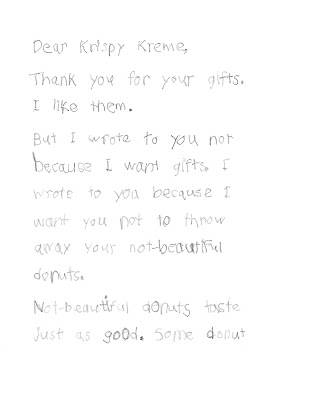 Dear Krispy Kreme,
Thank you for your gifts.
I like them.
But I wrote to you not
because I want gifts. I
wrote to you because I
want you not to throw
away your not-beautiful
donuts.
Not-beautiful donuts taste
just as good. Some donut